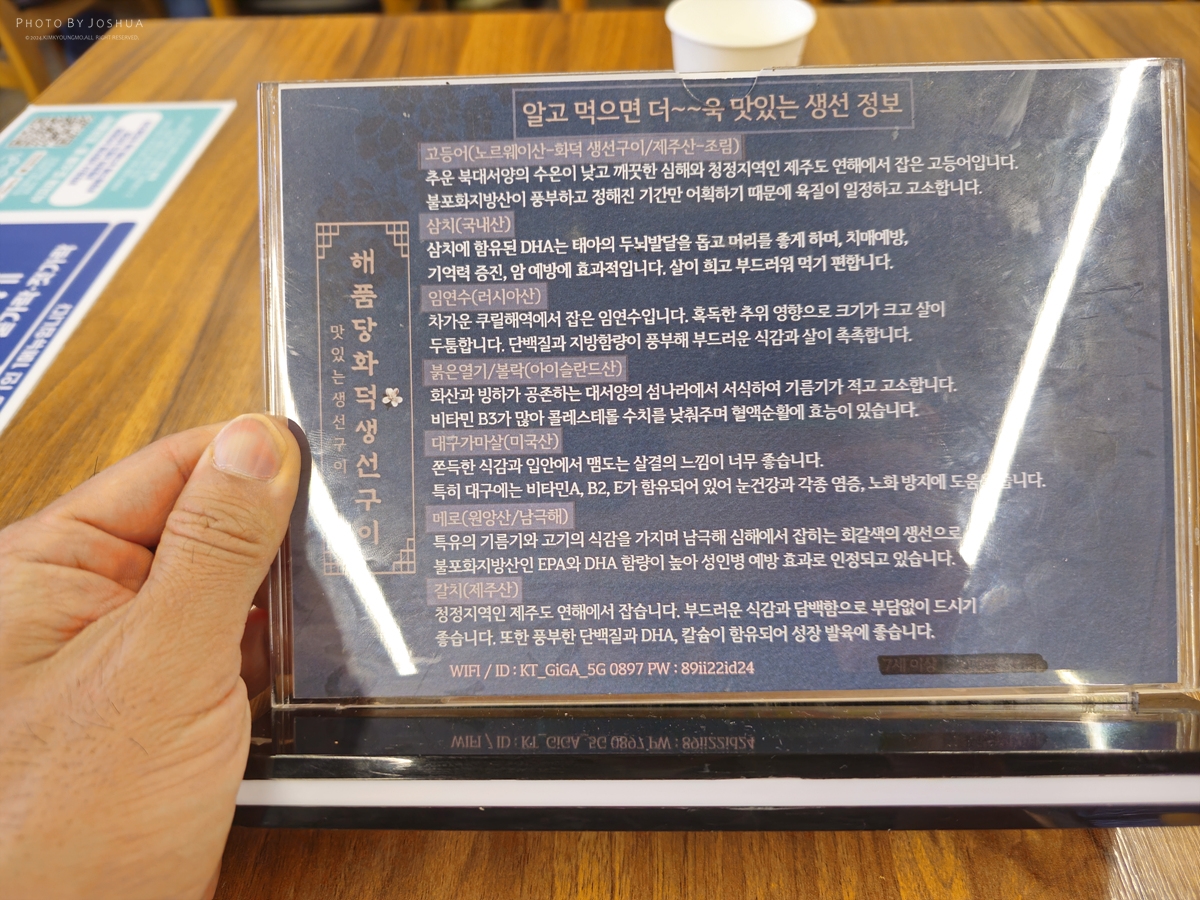 PHOTO BY JOSHUA
© 2024.KIMKYOUNGMO.ALL RIGHT RESERVED.
알고 먹으면 더~~욱 맛있는 생선 정보
고등어(노르웨이산-화덕 생선구이/제주산-조림)
추운 북대서양의 수온이 낮고 깨끗한 심해와 청정지역인 제주도 연해에서 잡은 고등어입니다.
불포화지방산이 풍부하고 정해진 기간만 어획하기 때문에 육질이 일정하고 고소합니다.
삼치(국내산)
삼치에 함유된 DHA는 태아의 두뇌발달을 돕고 머리를 좋게 하며, 치매예방,
기억력 증진, 암 예방에 효과적입니다. 살이 희고 부드러워 먹기 편합니다.
임연수(러시아산)
차가운 쿠릴해역에서 잡은 임연수입니다. 혹독한 추위 영향으로 크기가 크고 살이
두툼합니다. 단백질과 지방함량이 풍부해 부드러운 식감과 살이 촉촉합니다.
붉은열기/볼락(아이슬란드산)
화산과 빙하가 공존하는 대서양의 섬나라에서 서식하여 기름기가 적고 고소합니다.
비타민 B3가 많아 콜레스테롤 수치를 낮춰주며 혈액순활에 효능이 있습니다.
대구가마살(미국산)
쫀득한 식감과 입안에서 맴도는 살결의 느낌이 너무 좋습니다.
특히 대구에는 비타민A, B2, E가 함유되어 있어 눈건강과 각종 염증, 노화 방지에
메로(원양산/남극해)
특유의 기름기와 고기의 식감을 가지며 남극해 심해에서 잡히는 회갈색의 생선으로
불포화지방산인 EPA와 DHA 함량이 높아 성인병 예방 효과로 인정되고 있습니다.
갈치(제주산)
청정지역인 제주도 연해에서 잡습니다. 부드러운 식감과 담백함으로 부담없이 드시기
좋습니다. 또한 풍부한 단백질과 DHA, 칼슘이 함유되어 성장 발육에 좋습니다.
WIFI / ID : KT_GiGA_5G 0897 PW : 89ii22id24
7세 이상
해품당화덕생선구이
맛있는생선구이